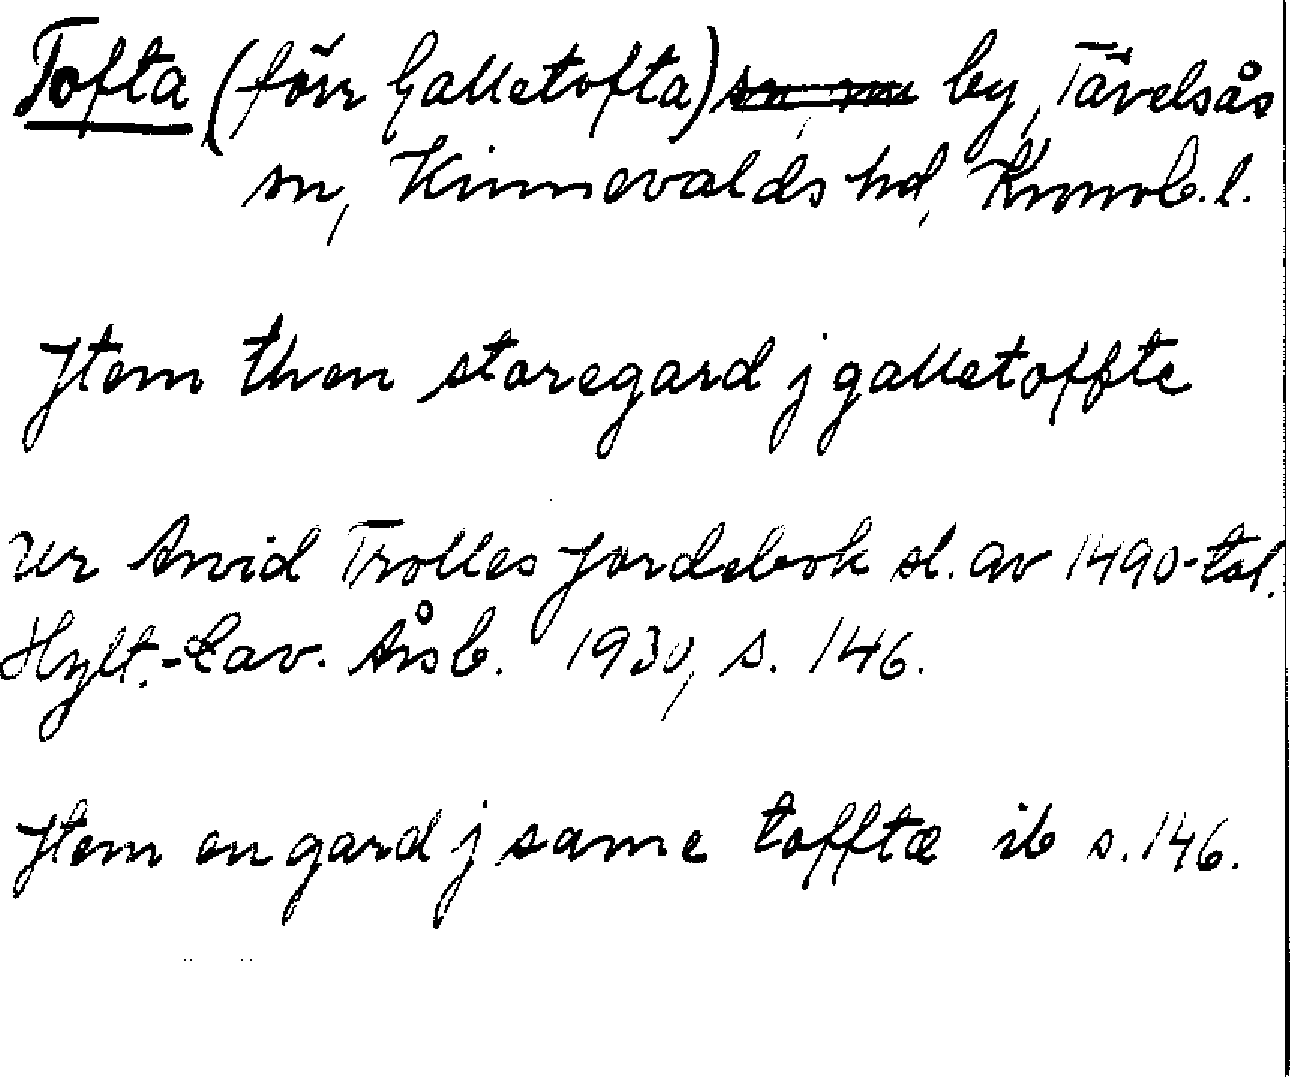 Tofta (förr Galletofta) by, Tävelsås
sn, Kinnevalds hd, Kronob. l.
Jtem then storegard j galletoffte
Ur Arvid Trolles jordebok sl. av 1490-tal.
Hylt.-Cav. Årsb. 1930, s. 146.
Jtem en gard j same tofftæ ib s. 146.